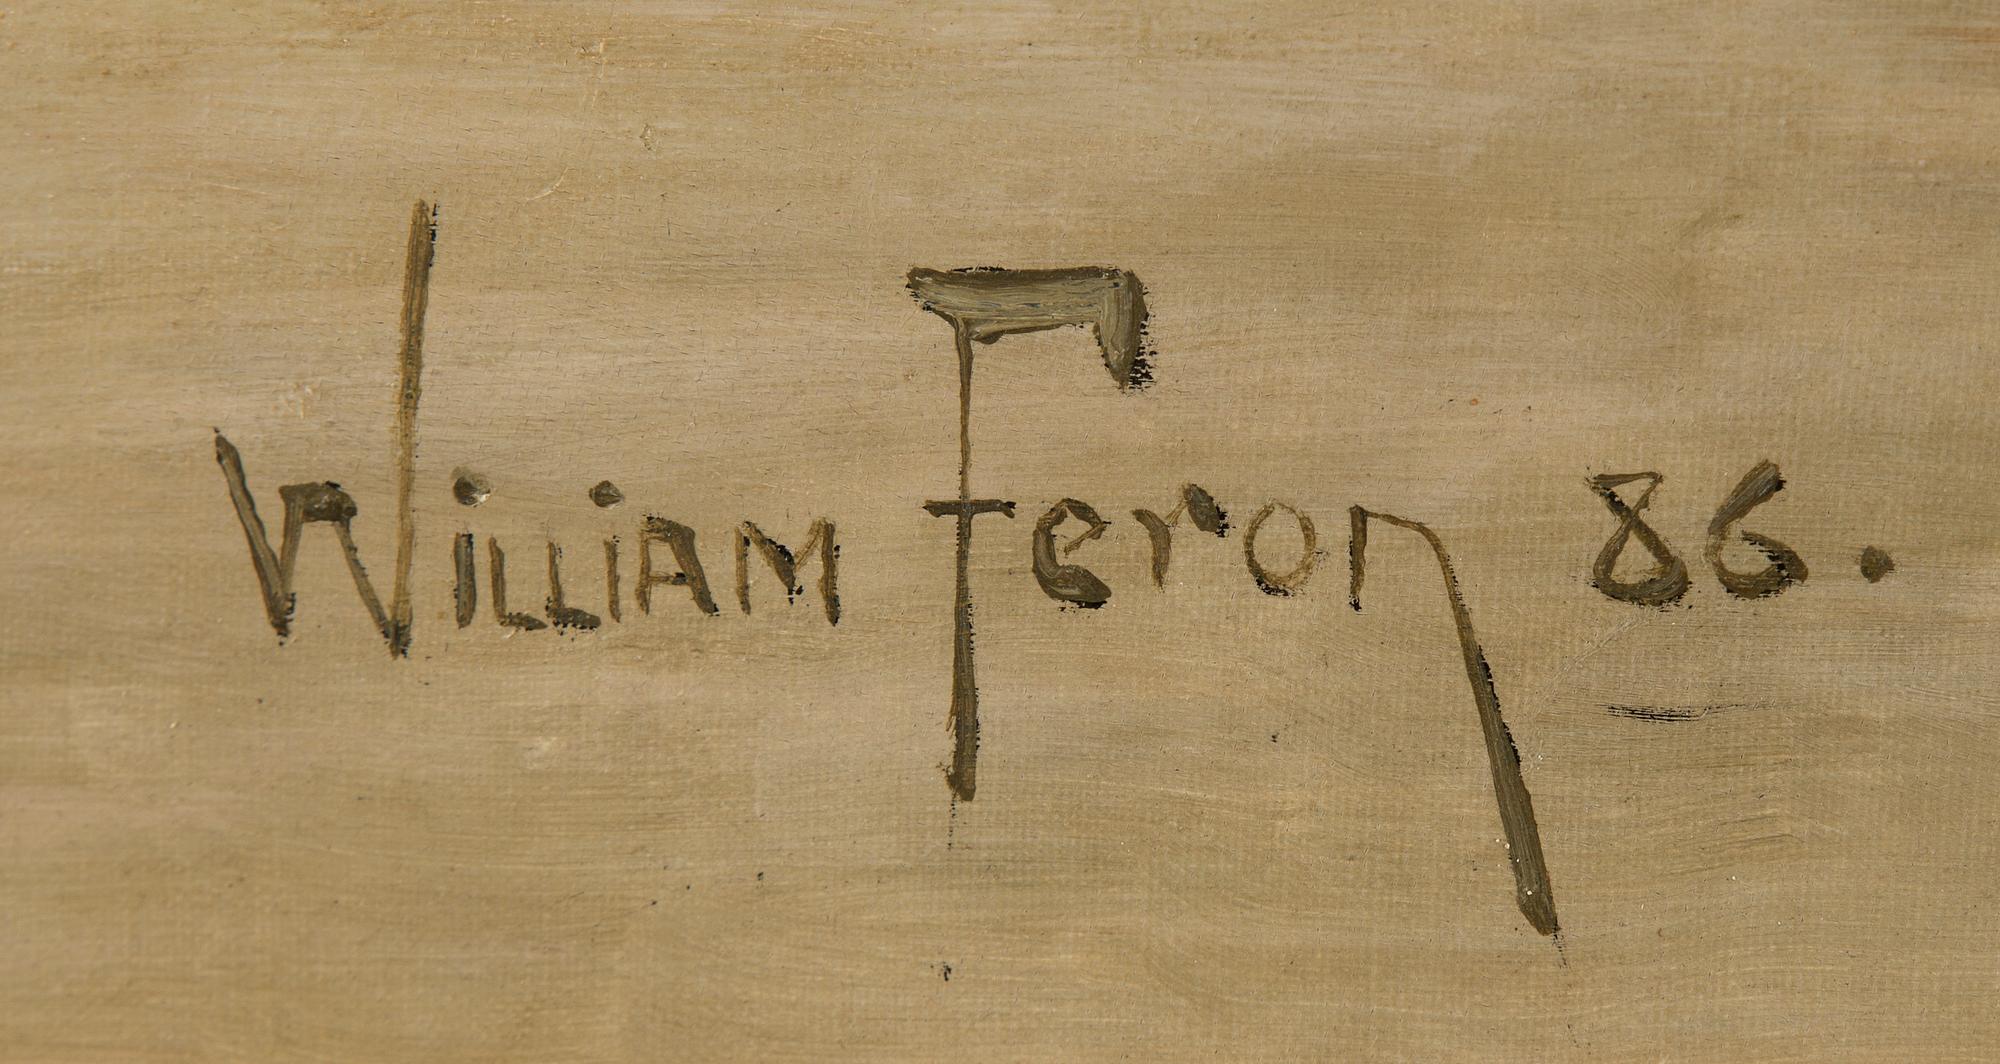 William Feron 86.